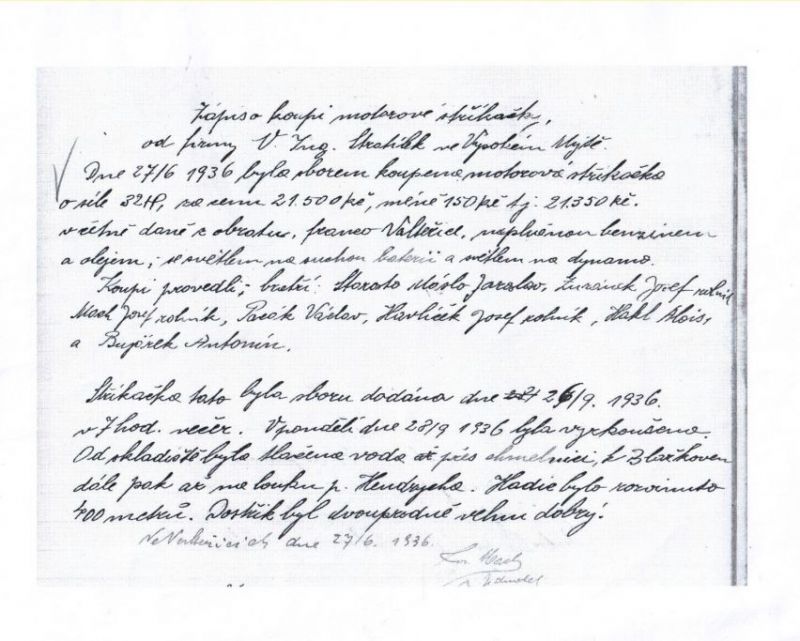 Zápis o koupi motorové stříkačky,
od firmy V. Ing. Stratílek ve Vysokém Mýtě.
Dne 27/6 1936 byla sborem koupena motorová stříkačka
o síle 32HP, za cenu 21.500 kč, méně 150 kč tj: 21.350 kč.
včétně daně z obratu, franco Valteřice, naplněnou benzinem
a olejem, se světlem na suchou baterii a světlem na dynamo.
Koupi provedli, bratři: Starosta Máslo Jaroslav, Josef rolník
Mach Josef rolník, Pacák Václav, Havlíček Josef rolník, Hakl Alois,
a Bujárek Antonín.
Stříkačka tato byla sboru dodána dne 26/9. 1936.
v 7 hod. večer. V pondělí dne 28/9 1936 byla vyzkoušena.
Od skladiště byla tlačena voda až přes chmelnici, k Blažkovem
dále pak až na louku p. Hendrycha. Hadic bylo rozvinuto
400 metrů. Dostřik byl dvouproudně velmi dobrý.
dne 27/6. 1936.
Mach